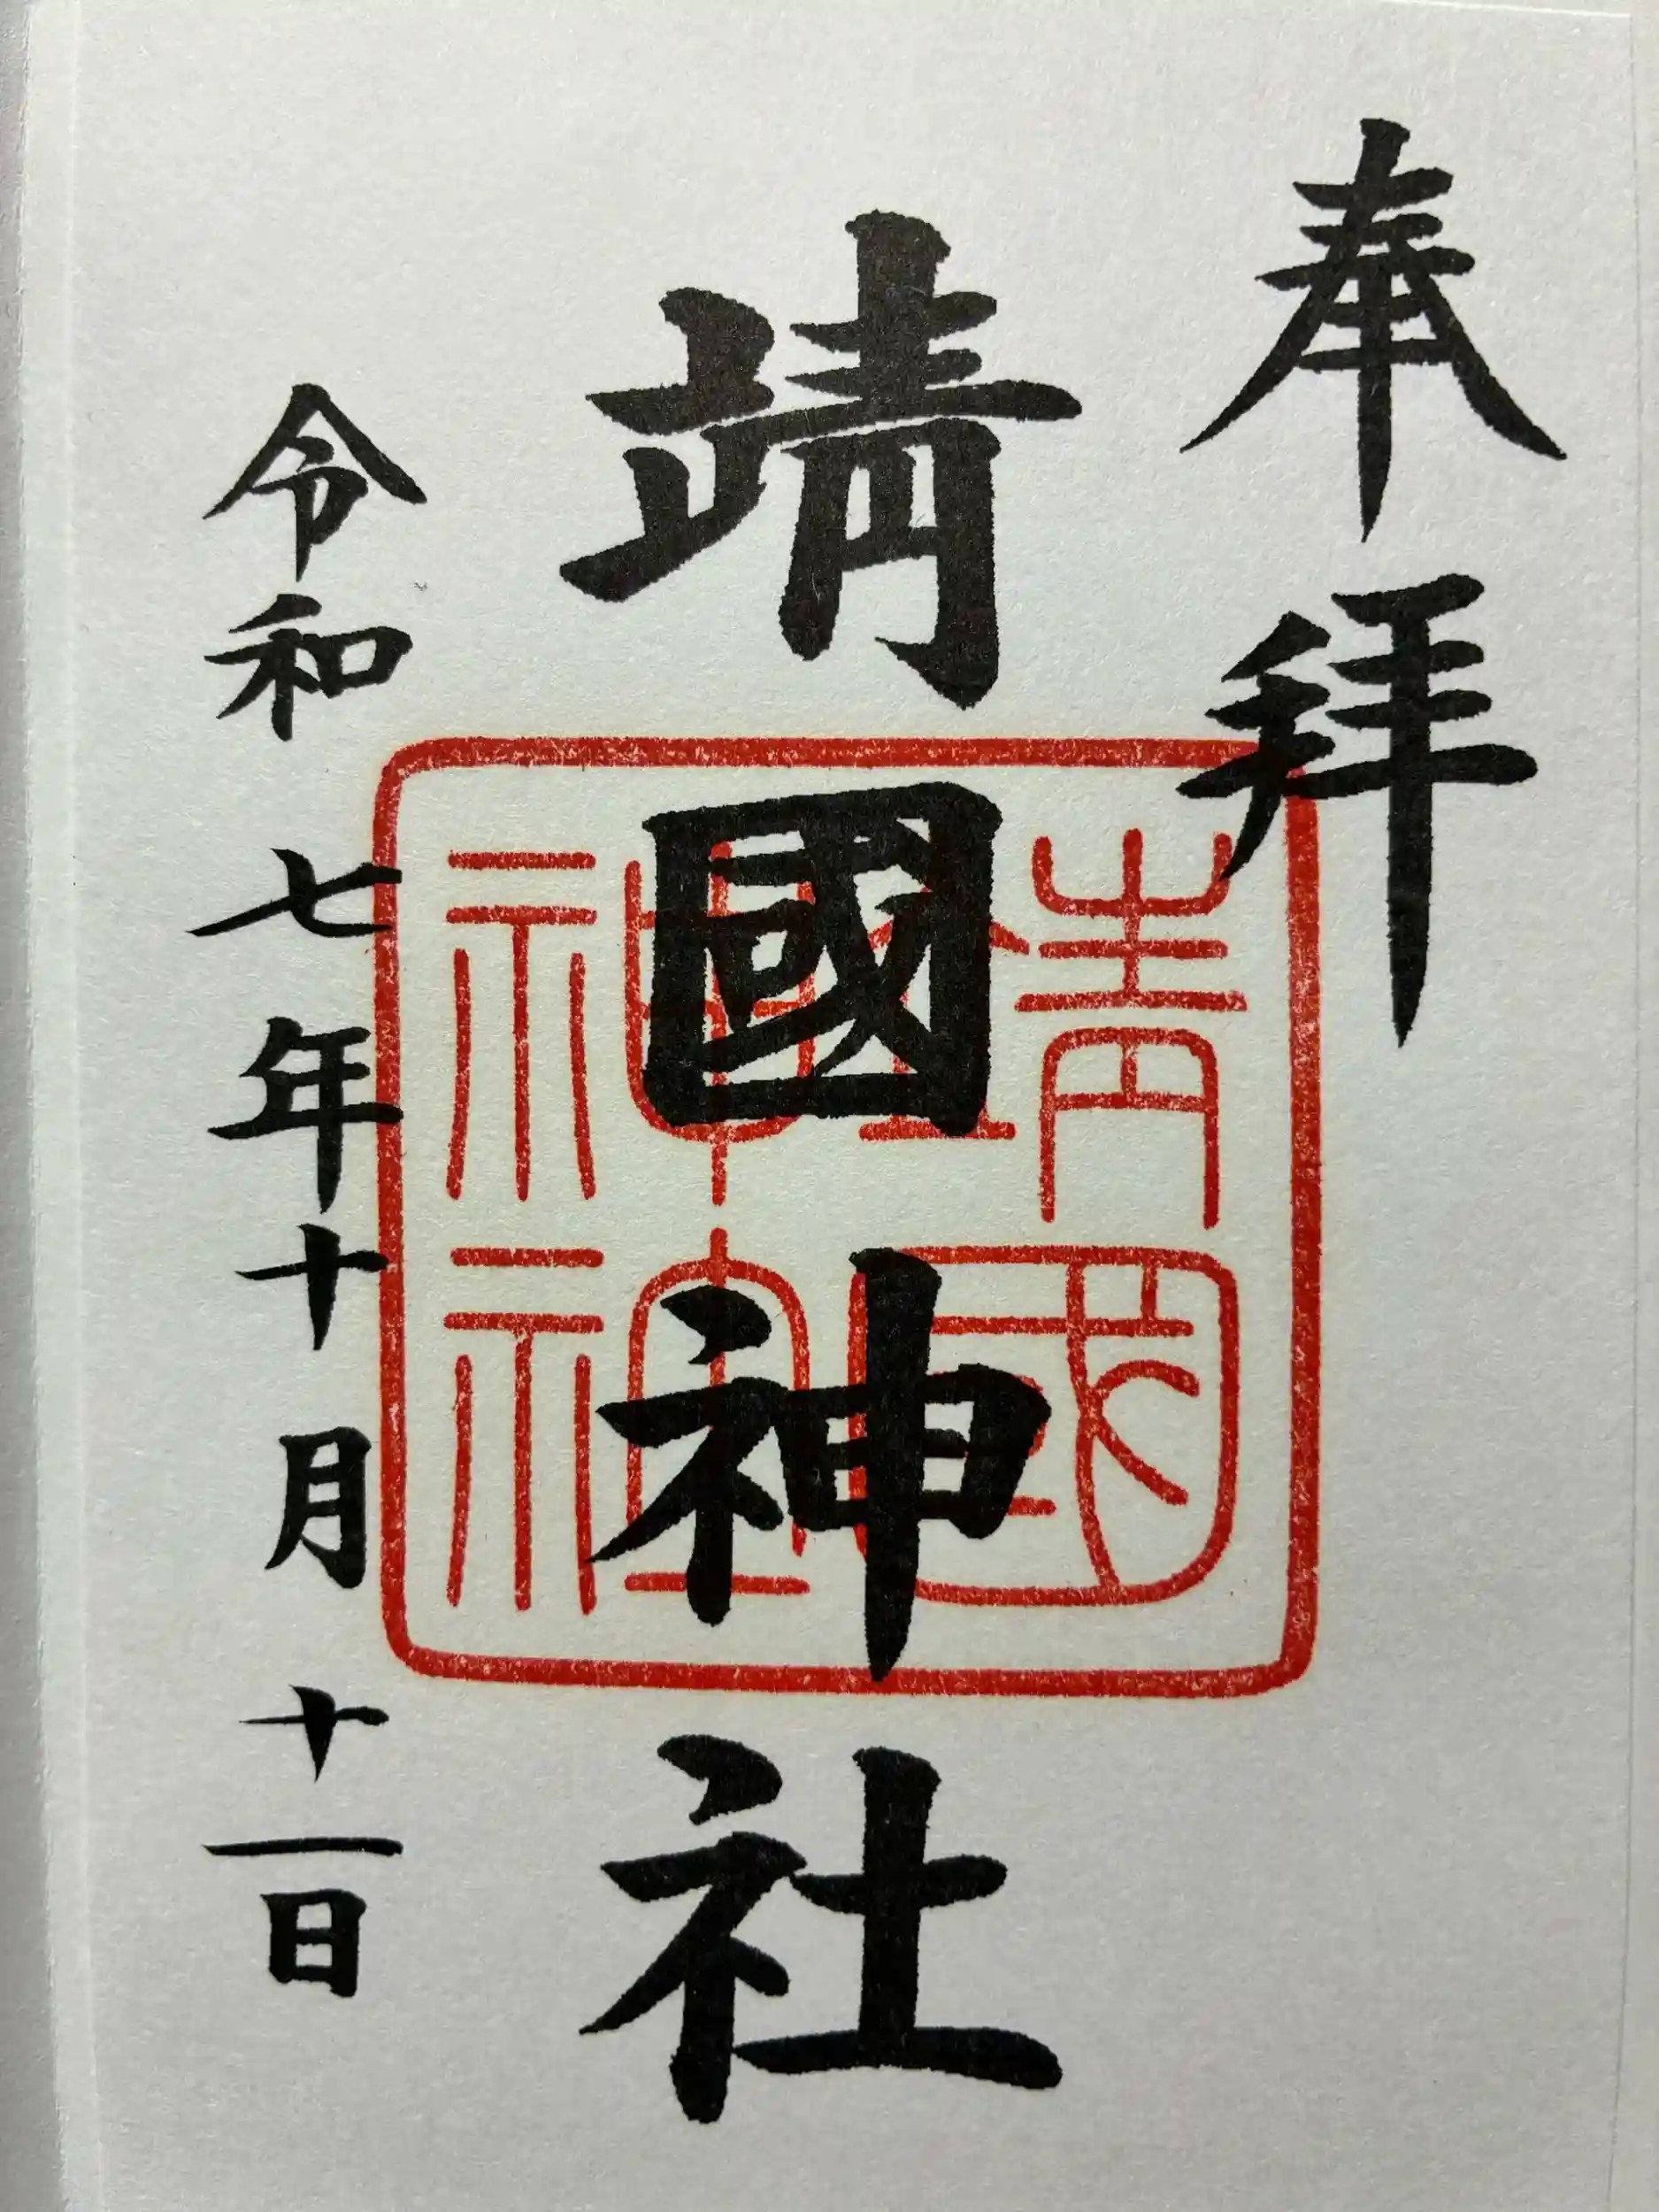 奉拝
靖國神社
令和七年十月十一日
靖國
神社